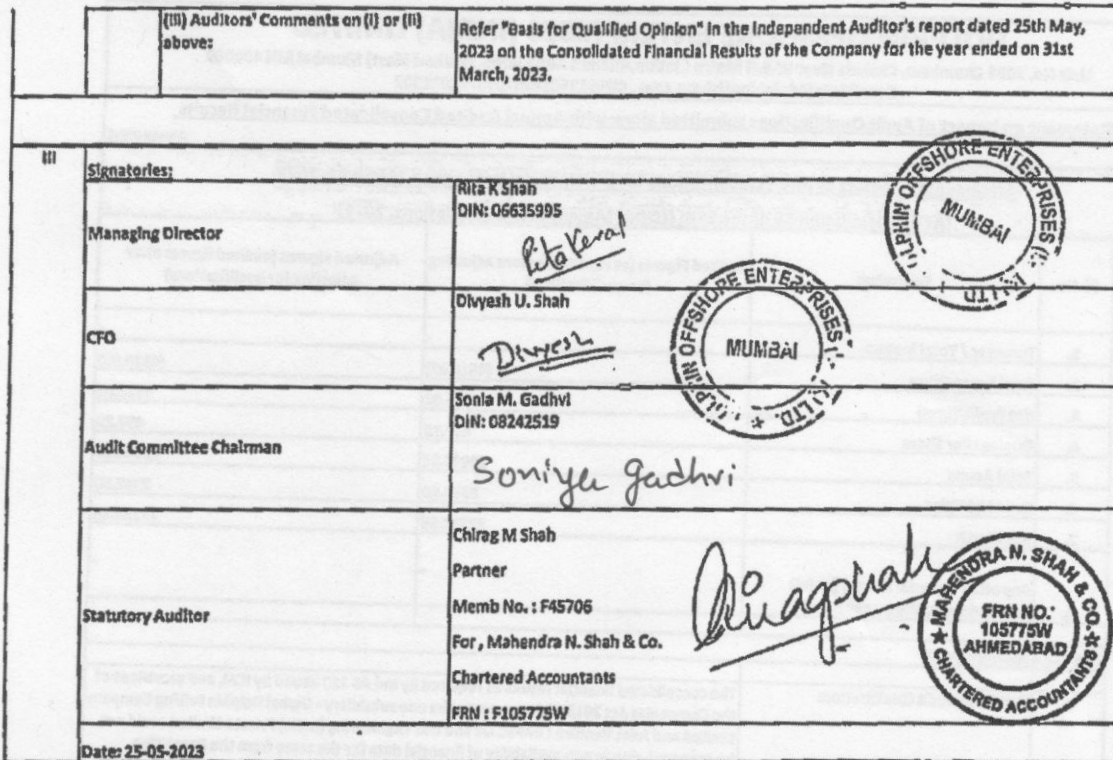 (iii) Auditors' Comments on (i) or (ii) above:
Refer "Basis for Qualified Opinion" in the Independent Auditor's report dated 25th May,
2023 on the Consolidated Financial Results of the Company for the year ended on 31st
March, 2023.
III
Signatories:
Managing Director
Rita K Shah
DIN: 06635995
Rita Keval
CFO
Divyesh U. Shah
Divyesh
Audit Committee Chairman
Sonia M. Gadhvi
DIN: 08242519
Soniya gadhvi
Statutory Auditor
Chirag M Shah
Partner
Memb No. : F45706
For, Mahendra N. Shah & Co.
Chartered Accountants
FRN : F105775W
Chiragshah
Date: 25-05-2023
OFFSHORE ENTERPRISES
MUMBAI
LTD.
OFFSHORE ENTERPRISES
MUMBAI
LTD.
MAHENDRA N. SHAH & CO.
FRN NO.
105775W
AHMEDABAD
CHARTERED ACCOUNTANTS